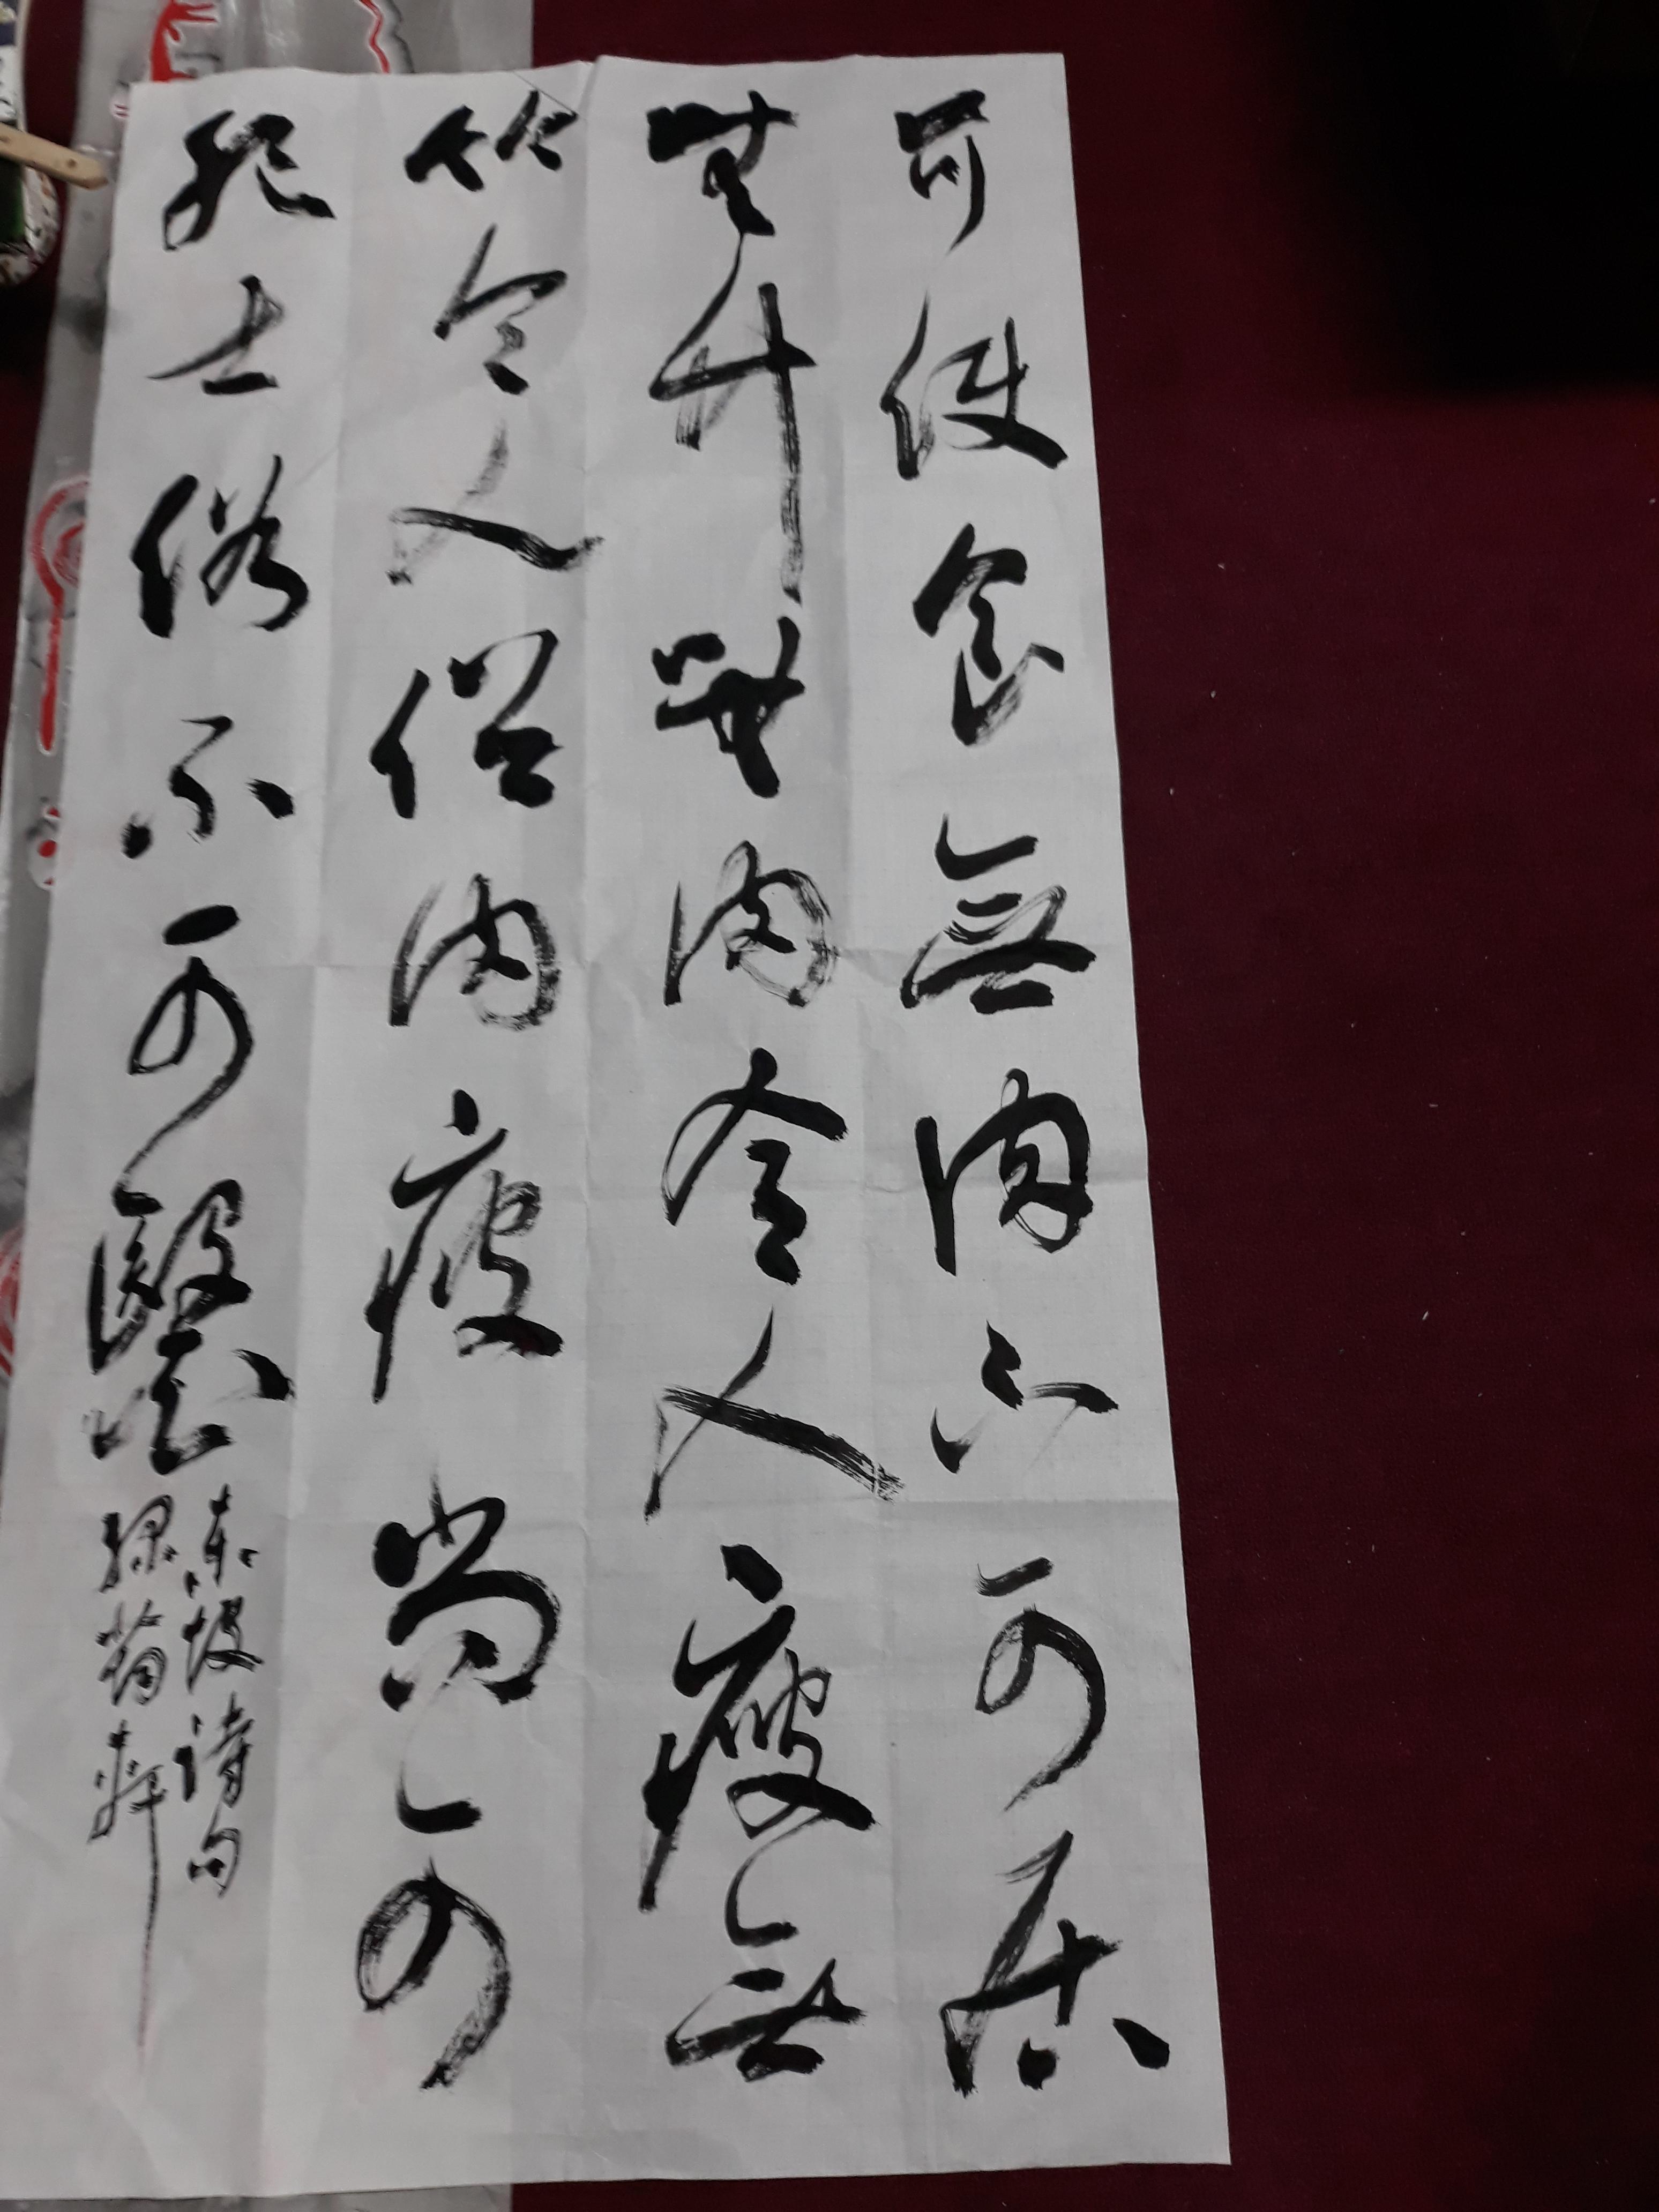 可使食無肉不可居
無竹無肉令人瘦無
竹令人俗肉瘦尚可
肥士俗不可醫
東坡詩句
綠筠軒